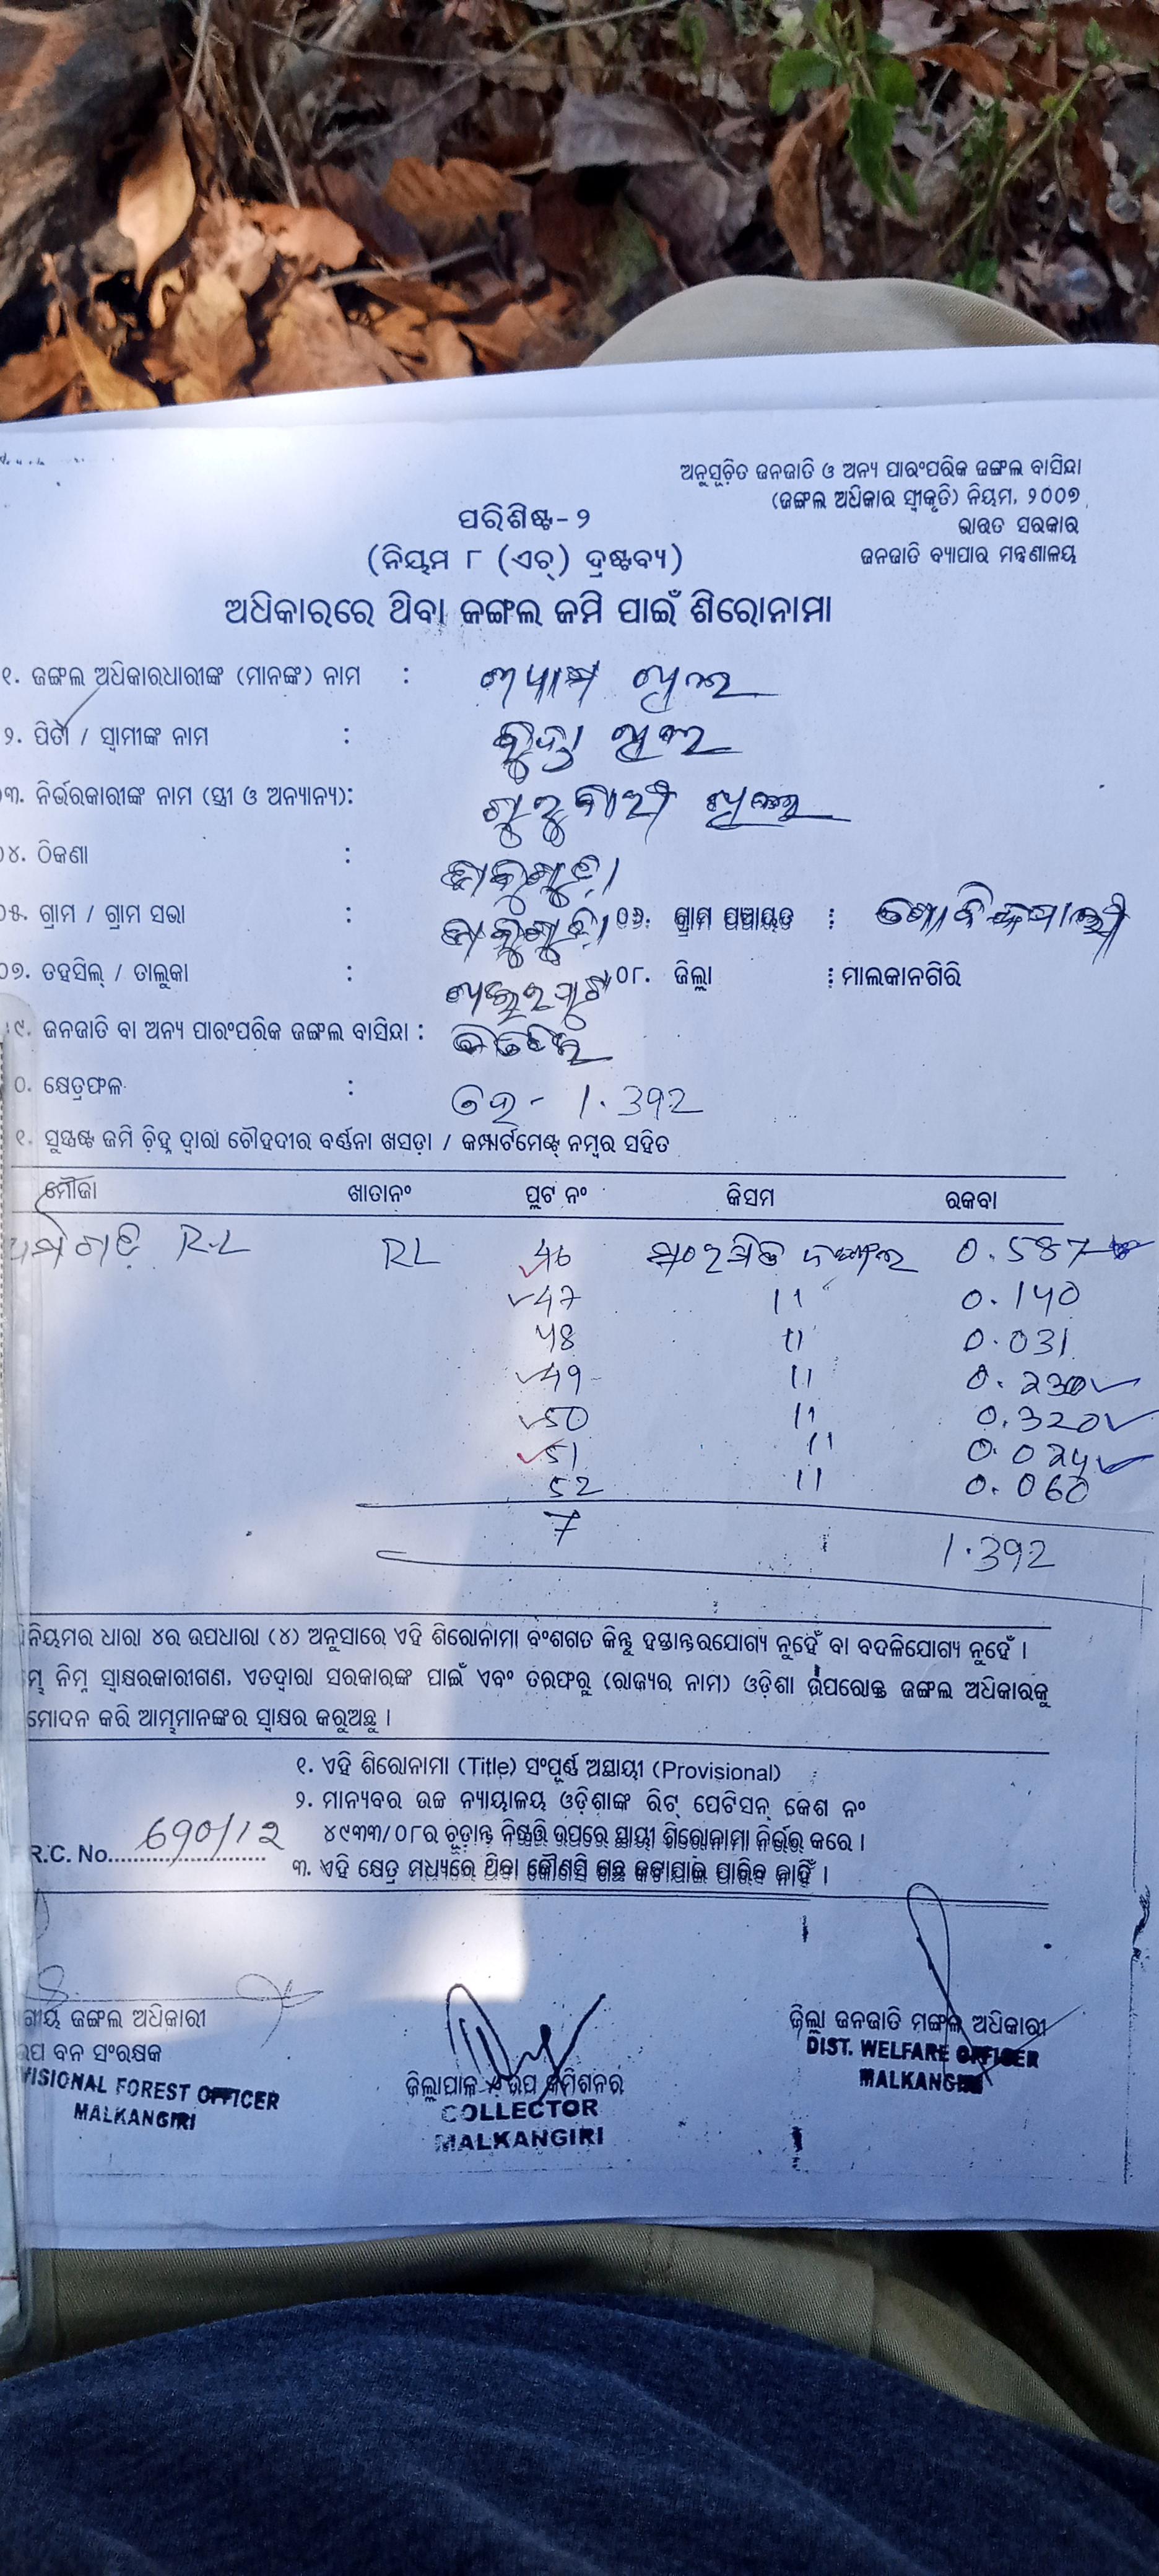 ଅନୁସୂଚିତ ଜନଜାତି ଓ ଅନ୍ୟ ପାରଂପରିକ ଜଙ୍ଗଲ ବାସିନ୍ଦା
(ଜଙ୍ଗଲ ଅଧିକାର ସ୍ୱୀକୃତି) ନିୟମ, ୨୦୦୭
ଭାରତ ସରକାର
ଜନଜାତି ବ୍ୟାପାର ମନ୍ତ୍ରଣାଳୟ
ପରିଶିଷ୍ଟ-୨
(ନିୟମ ୮ (ଏଚ୍) ଦ୍ରଷ୍ଟବ୍ୟ)
ଅଧିକାରରେ ଥିବା ଜଙ୍ଗଲ ଜମି ପାଇଁ ଶିରୋନାମା
୧. ଜଙ୍ଗଲ ଅଧିକାରଧାରୀଙ୍କ (ମାନଙ୍କ) ନାମ :
୨. ପିତା / ସ୍ୱାମୀଙ୍କ ନାମ :
୦୩. ନିର୍ଭରକାରୀଙ୍କ ନାମ (ସ୍ତ୍ରୀ ଓ ଅନ୍ୟାନ୍ୟ):
୦୪. ଠିକଣା :
୦୫. ଗ୍ରାମ / ଗ୍ରାମ ସଭା : ୦୬. ଗ୍ରାମ ପଞ୍ଚାୟତ : ଗୋବିନ୍ଦପାଲୀ
୦୭. ତହସିଲ୍ / ତାଲୁକା : ଖଇରପୁଟ ୦୮. ଜିଲ୍ଲା : ମାଲକାନଗିରି
୯. ଜନଜାତି ବା ଅନ୍ୟ ପାରଂପରିକ ଜଙ୍ଗଲ ବାସିନ୍ଦା :
୦. କ୍ଷେତ୍ରଫଳ : ହେ - 1.392
୧. ସୁସ୍ପଷ୍ଟ ଜମି ଚିହ୍ନ ଦ୍ୱାରା ଚୌହଦୀର ବର୍ଣ୍ଣନା ଖସଡ଼ା / କମ୍ପାର୍ଟମେଣ୍ଟ୍ ନମ୍ବର ସହିତ
ମୌଜା ଖାତାନଂ ପ୍ଲଟ ନଂ କିସମ ରକବା
R.L RL 46 ସଂରକ୍ଷିତ ଜଙ୍ଗଲ 0.587
47 11 0.140
48 11 0.031
49 11 0.230
50 11 0.320
51 11 0.024
52 11 0.060
7 1.392
ନିୟମର ଧାରା ୪ର ଉପଧାରା (୪) ଅନୁସାରେ ଏହି ଶିରୋନାମା ବଂଶଗତ କିନ୍ତୁ ହସ୍ତାନ୍ତରଯୋଗ୍ୟ ନୁହେଁ ବା ବଦଳିଯୋଗ୍ୟ ନୁହେଁ ।
ନିମ୍ନ ସ୍ୱାକ୍ଷରକାରୀଗଣ, ଏତଦ୍ୱାରା ସରକାରଙ୍କ ପାଇଁ ଏବଂ ତରଫରୁ (ରାଜ୍ୟର ନାମ) ଓଡ଼ିଶା ଉପରୋକ୍ତ ଜଙ୍ଗଲ ଅଧିକାରକୁ
ମୋଦନ କରି ଆମ୍ଭମାନଙ୍କର ସ୍ୱାକ୍ଷର କରୁଅଛୁ ।
୧. ଏହି ଶିରୋନାମା (Title) ସଂପୂର୍ଣ୍ଣ ଅସ୍ଥାୟୀ (Provisional)
୨. ମାନ୍ୟବର ଉଚ୍ଚ ନ୍ୟାୟାଳୟ ଓଡ଼ିଶାଙ୍କ ରିଟ୍ ପେଟିସନ୍ କେଶ ନଂ
୪୯୩୩/୦୮ର ଚୂଡ଼ାନ୍ତ ନିଷ୍ପତ୍ତି ଉପରେ ସ୍ଥାୟୀ ଶିରୋନାମା ନିର୍ଭର କରେ ।
R.C. No. 690/12
୩. ଏହି କ୍ଷେତ୍ର ମଧ୍ୟରେ ଥିବା କୌଣସି ଗଛ କଟାଯାଇ ପାରିବ ନାହିଁ ।
ଜଙ୍ଗଲ ଅଧିକାରୀ
ବନ ସଂରକ୍ଷକ
VISIONAL FOREST OFFICER
MALKANGIRI
ଜିଲ୍ଲାପାଳ ଉପ କମିଶନର
COLLECTOR
MALKANGIRI
ଜିଲ୍ଲା ଜନଜାତି ମଙ୍ଗଳ ଅଧିକାରୀ
DIST. WELFARE OFFICER
MALKANGIRI